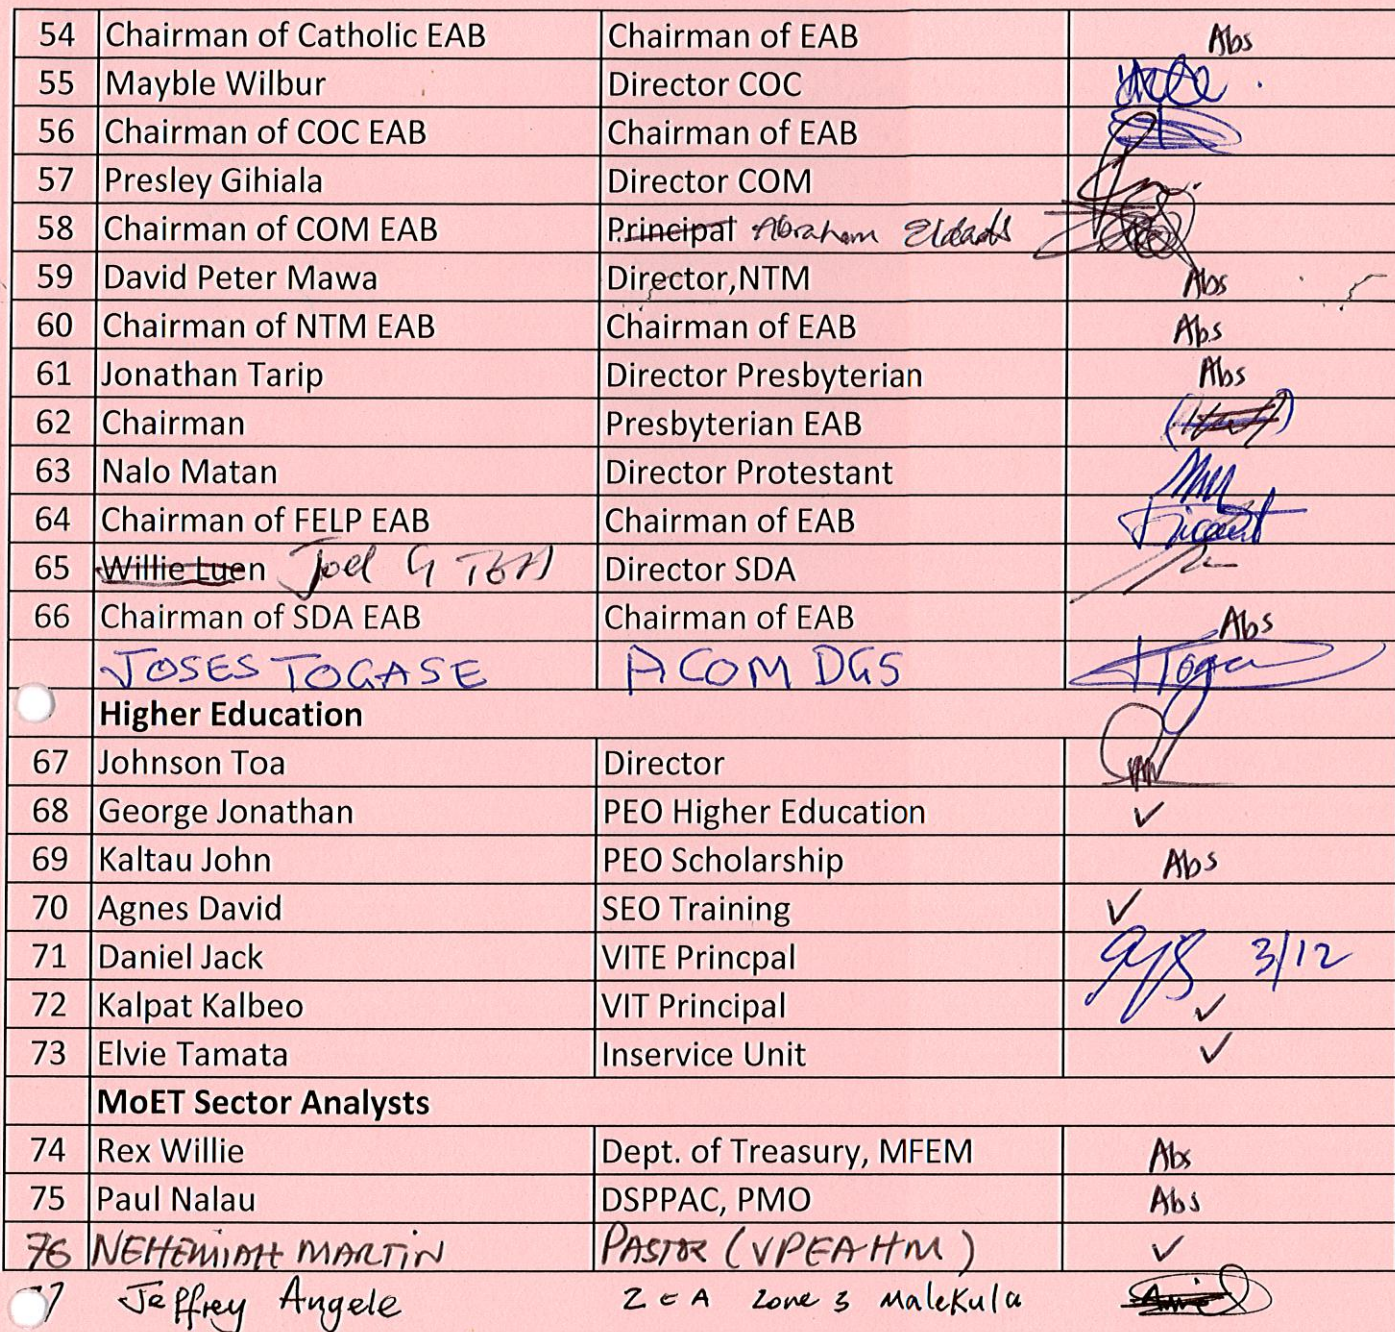 54 Chairman of Catholic EAB Chairman of EAB Abs
55 Mayble Wilbur Director COC
56 Chairman of COC EAB Chairman of EAB
57 Presley Gihiala Director COM
58 Chairman of COM EAB Principal Abraham
59 David Peter Mawa Director,NTM Abs
60 Chairman of NTM EAB Chairman of EAB Abs
61 Jonathan Tarip Director Presbyterian Abs
62 Chairman Presbyterian EAB
63 Nalo Matan Director Protestant
64 Chairman of FELP EAB Chairman of EAB
65 Willie Luen Joel Director SDA
66 Chairman of SDA EAB Chairman of EAB Abs
JOSES TOGASE ACOM DGS
Higher Education
67 Johnson Toa Director
68 George Jonathan PEO Higher Education ✓
69 Kaltau John PEO Scholarship Abs
70 Agnes David SEO Training ✓
71 Daniel Jack VITE Princpal 3/12
72 Kalpat Kalbeo VIT Principal ✓
73 Elvie Tamata Inservice Unit ✓
MoET Sector Analysts
74 Rex Willie Dept. of Treasury, MFEM Abs
75 Paul Nalau DSPPAC, PMO Abs
76 NEHEMIAH MARTIN PASTOR (VPEAHM) ✓
Jeffrey Angele ZEA Zone 3 Malekula